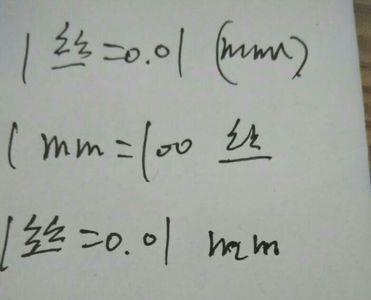 1丝=0.01 (mm)
1 mm=100 丝
1丝=0.01 mm